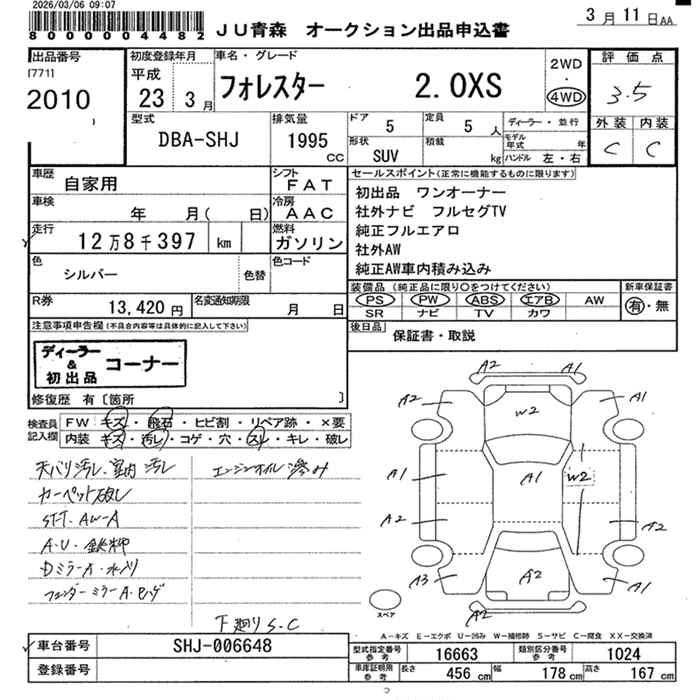 2026/03/06 09:07
800000004482
JU青森 オークション出品申込書
3月11日AA
出品番号
[771]
2010
初度登録年月
平成
23 3月
車名・グレード
フォレスター 2.0XS
2WD
・
4WD
評価点
3.5
外装 内装
C C
型式
DBA-SHJ
排気量
1995
CC
ドア 5
定員 5 人
形状 SUV
積載 kg
ディーラー・並行
モデル年式 年
ハンドル 左・右
車歴
自家用
シフト
FAT
車検
年 月( 日)
冷房
AAC
走行
12万8千397 km
燃料
ガソリン
色
シルバー
色替
色コード
R券
13,420円
名変通知期限
月 日
セールスポイント(正常に機能するものに限ります)
初出品 ワンオーナー
社外ナビ フルセグTV
純正フルエアロ
社外AW
純正AW車内積み込み
装備品(純正品に限り○をつけてください)
PS PW ABS エアB AW
SR ナビ TV カワ
新車保証書
有・無
後日品
保証書・取説
注意事項申告欄(不具合内容等は具体的に記入して下さい)
ディーラー
&
初出品
コーナー
修復歴 有〔箇所 〕
検査員
記入欄
FW キズ・飛石・ヒビ割・リペア跡・×要
内装 キズ・汚レ・コゲ・穴・スレ・キレ・破レ
天バリ汚レ、室内汚レ
エンジンオイル滲み
カーペット破レ
ST-T、AW-A
A・U・鉄粉
DミラーA・水入り
フェンダーミラーA、ハゲ
下廻りS.C
A2 A2
A2 A1
W2
A1 A1 W2
A2 A2
A3 A2 A1
A2
スペア
A-キズ E-エクボ U-凹み W-補修跡 S-サビ C-腐食 XX-交換済
車台番号
SHJ-006648
登録番号
型式指定番号
参考
16663
類別区分番号
参考
1024
車庫証明用
参考
長さ 456 cm
幅 178 cm
高さ 167 cm